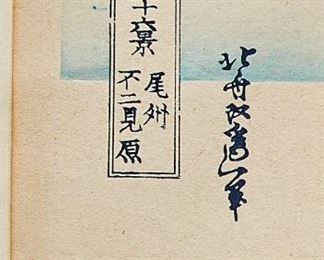 十六景
尾州
不二見原
北斎改為一筆